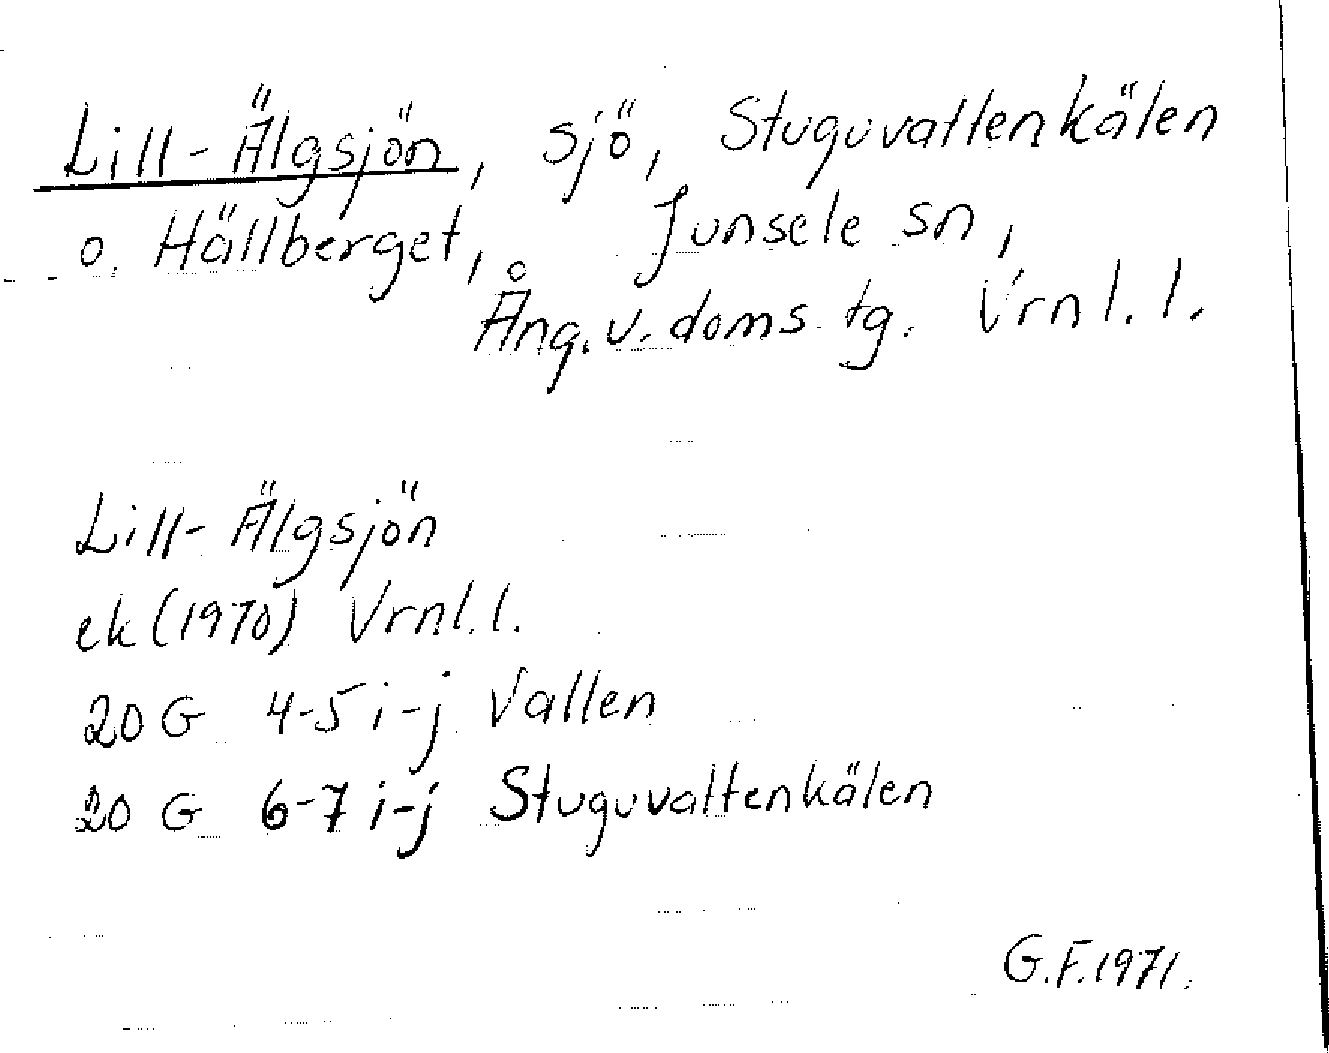 Lill-Älgsjön, sjö, Stuguvattenkälen
o. Hällberget, Junsele sn,
Ång.v.doms.tg. Vrnl.l.
Lill-Älgsjön
ek (1970) Vrnl.l.
20 G 4-5 i-j Vallen
20 G 6-7 i-j Stuguvattenkälen
G.F.1971.